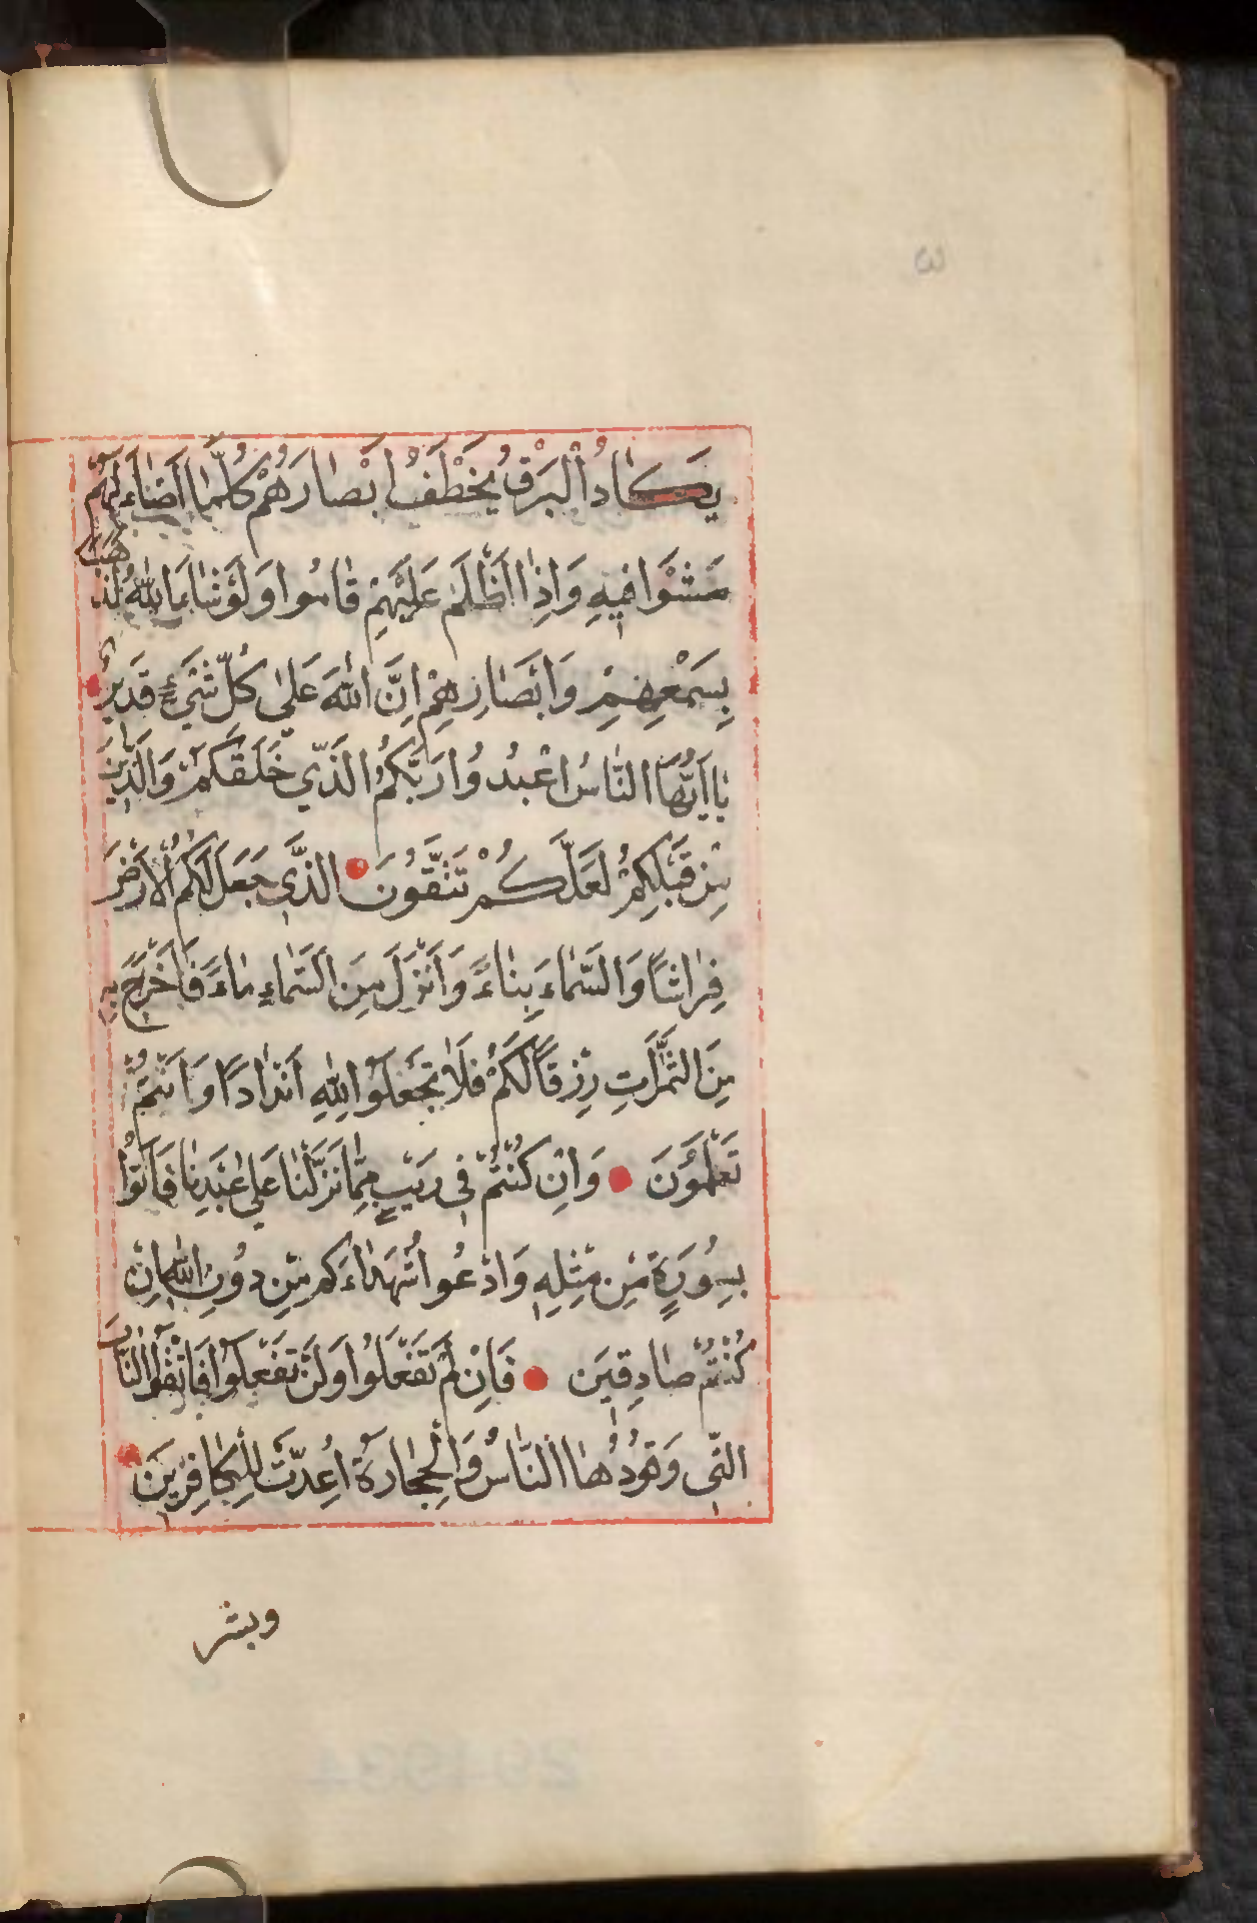 ٣
يَكَادُ الْبَرْقُ يَخْطَفُ اَبْصَارَهُمْ كُلَّمَا اَضَاءَ لَهُمْ
مَشَوْا فِيهِ وَاِذَا اَظْلَمَ عَلَيْهِمْ قَامُوا وَلَوْ شَاءَ اللّٰهُ لَذَهَبَ
بِسَمْعِهِمْ وَاَبْصَارِهِمْ اِنَّ اللّٰهَ عَلٰى كُلِّ شَيْءٍ قَدِيرٌ
يَا اَيُّهَا النَّاسُ اعْبُدُوا رَبَّكُمُ الَّذِي خَلَقَكُمْ وَالَّذِينَ
مِنْ قَبْلِكُمْ لَعَلَّكُمْ تَتَّقُونَ الَّذِي جَعَلَ لَكُمُ الْاَرْضَ
فِرَاشًا وَالسَّمَاءَ بِنَاءً وَاَنْزَلَ مِنَ السَّمَاءِ مَاءً فَاَخْرَجَ بِهِ
مِنَ الثَّمَرَاتِ رِزْقًا لَكُمْ فَلَا تَجْعَلُوا لِلّٰهِ اَنْدَادًا وَاَنْتُمْ
تَعْلَمُونَ وَاِنْ كُنْتُمْ فِي رَيْبٍ مِمَّا نَزَّلْنَا عَلٰى عَبْدِنَا فَاْتُوا
بِسُورَةٍ مِنْ مِثْلِهِ وَادْعُوا شُهَدَاءَكُمْ مِنْ دُونِ اللّٰهِ اِنْ
كُنْتُمْ صَادِقِينَ فَاِنْ لَمْ تَفْعَلُوا وَلَنْ تَفْعَلُوا فَاتَّقُوا النَّارَ
الَّتِي وَقُودُهَا النَّاسُ وَالْحِجَارَةُ اُعِدَّتْ لِلْكَافِرِينَ
وبشر